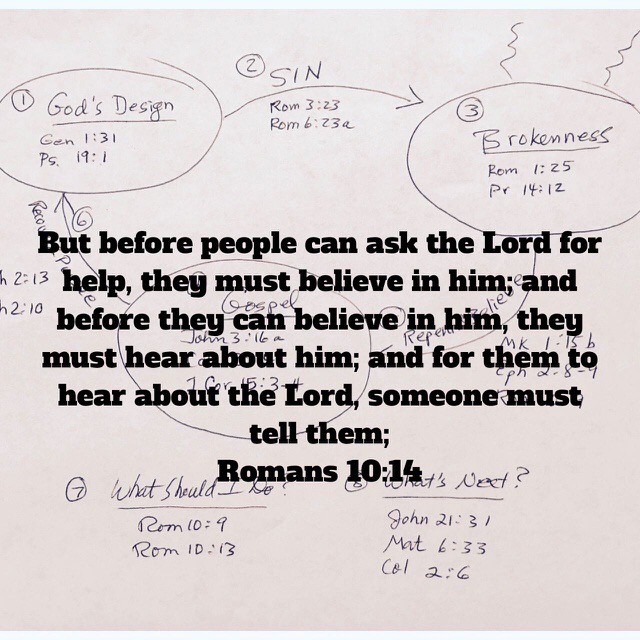 ② SIN
Rom 3:23
Rom 6:23a
① God's Design
Gen 1:31
Ps. 19:1
③
Brokenness
Rom 1:25
Pr 14:12
⑥
But before people can ask the Lord for
help, they must believe in him; and
before they can believe in him, they
must hear about him; and for them to
hear about the Lord, someone must
tell them;
Romans 10:14
h 2:13
h 2:10
Gospel
John 3:16a
1 Cor 15:3-4
Repent Believe
Mk 1:15b
Eph 2:8-9
⑦ What Should I Do?
Rom 10:9
Rom 10:13
⑧ What's Next?
John 21:31
Mat 6:33
Col 2:6